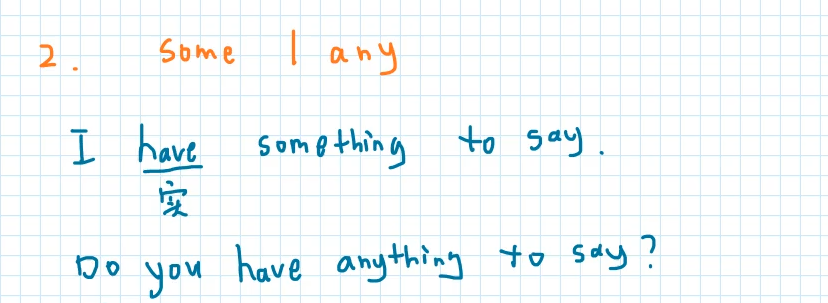 2. some / any
I have something to say.
实
Do you have anything to say?